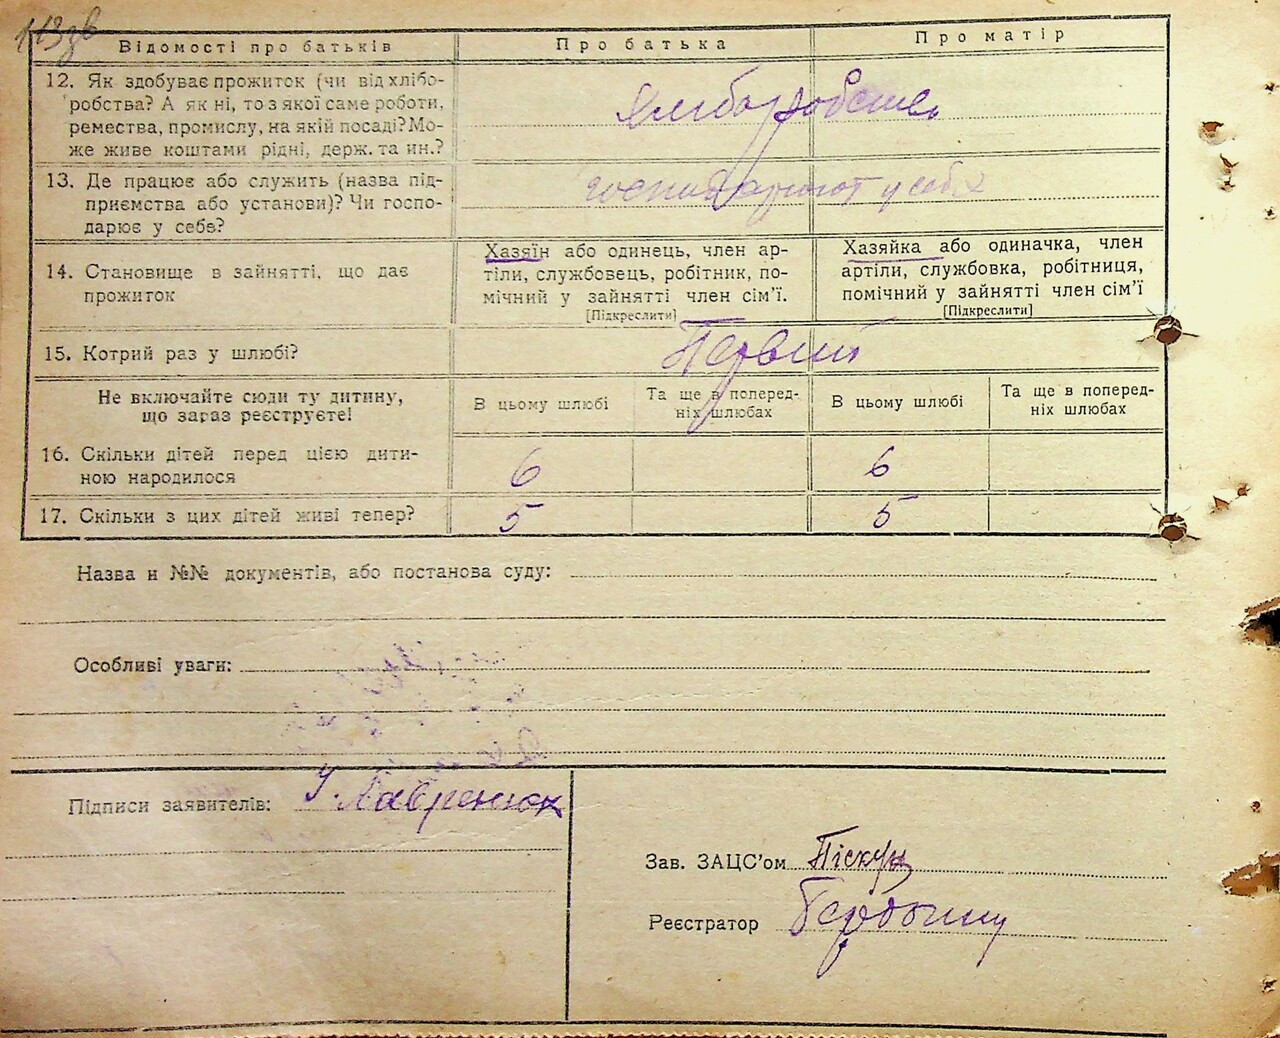 113зв
Відомості про батьків
Про батька
Про матір
12. Як здобуває прожиток (чи від хлібо-
робства? А як ні, то з якої саме роботи,
ремества, промислу, на якій посаді? Мо-
же живе коштами рідні, держ. та ин.?
13. Де працює або служить (назва під-
приємства або установи)? Чи госпо-
дарює у себе?
господарюют у себя
14. Становище в зайнятті, що дає
прожиток
Хазяїн або одинець, член ар-
тіли, службовець, робітник, по-
мічний у зайнятті член сім'ї.
[Підкреслити]
Хазяйка або одиначка, член
артіли, службовка, робітниця,
помічний у зайнятті член сім'ї
[Підкреслити]
15. Котрий раз у шлюбі?
Первий
Не включайте сюди ту дитину,
що зараз реєструєте!
В цьому шлюбі
Та ще в поперед-
ніх шлюбах
В цьому шлюбі
Та ще в поперед-
ніх шлюбах
16. Скільки дітей перед цією дити-
ною народилося
6
6
17. Скільки з цих дітей живі тепер?
5
5
Назва и №№ документів, або постанова суду:
Особливі уваги:
Підписи заявителів: У. Лавренюк
Зав. ЗАЦС'ом Піскун
Реєстратор